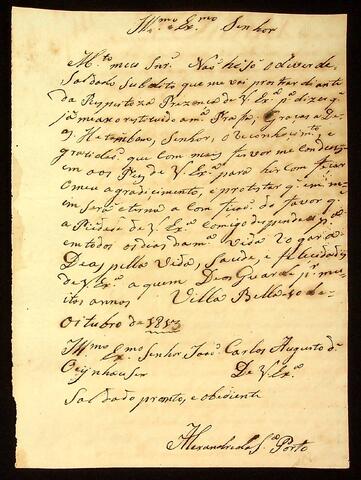 Illmo e Exmo Senhor
Mto meu Snr. Não he só o dever de
Soldado Subdito que me vai prostrar diante
da Respeitavel Prezença de V. Exa pa dizer q
já me axo restituido a ma Praça, Graças a De
os. He tambem, Senhor, o reconhecimto, e
gratidão, que com mais fervor me conduzem
em aos Pes de V. Exa para hir com ficar
o meu agradicimento, e protestar q em mim
será eterna a com do favor q
a Piedade de V. Exa comigo despende; e pr
em todos os dias da ma Vida rogar a
Deos pella Vida, Saude, e felicidades
de V. Exa a quem Deos Guarde pr mu
itos annos Villa Bella 10 de
Oitubro de 1813
Illmo e Exmo Senhor João Carlos Augusto de
Oeynhauser
De V. Exa
Soldado pronto, e obidiente
Alexandre da Sa Porto